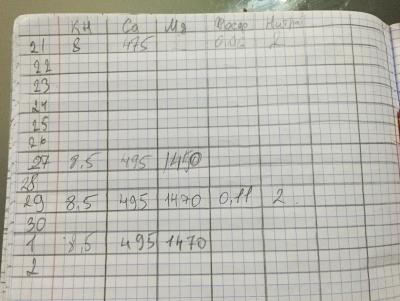 KH Ca Mg Фосф Нитр
21 8 475 2
22
23
24
25
26
27 8,5 495 1450
28
29 8,5 495 1470 0,11 2
30
1 8,5 495 1470
2